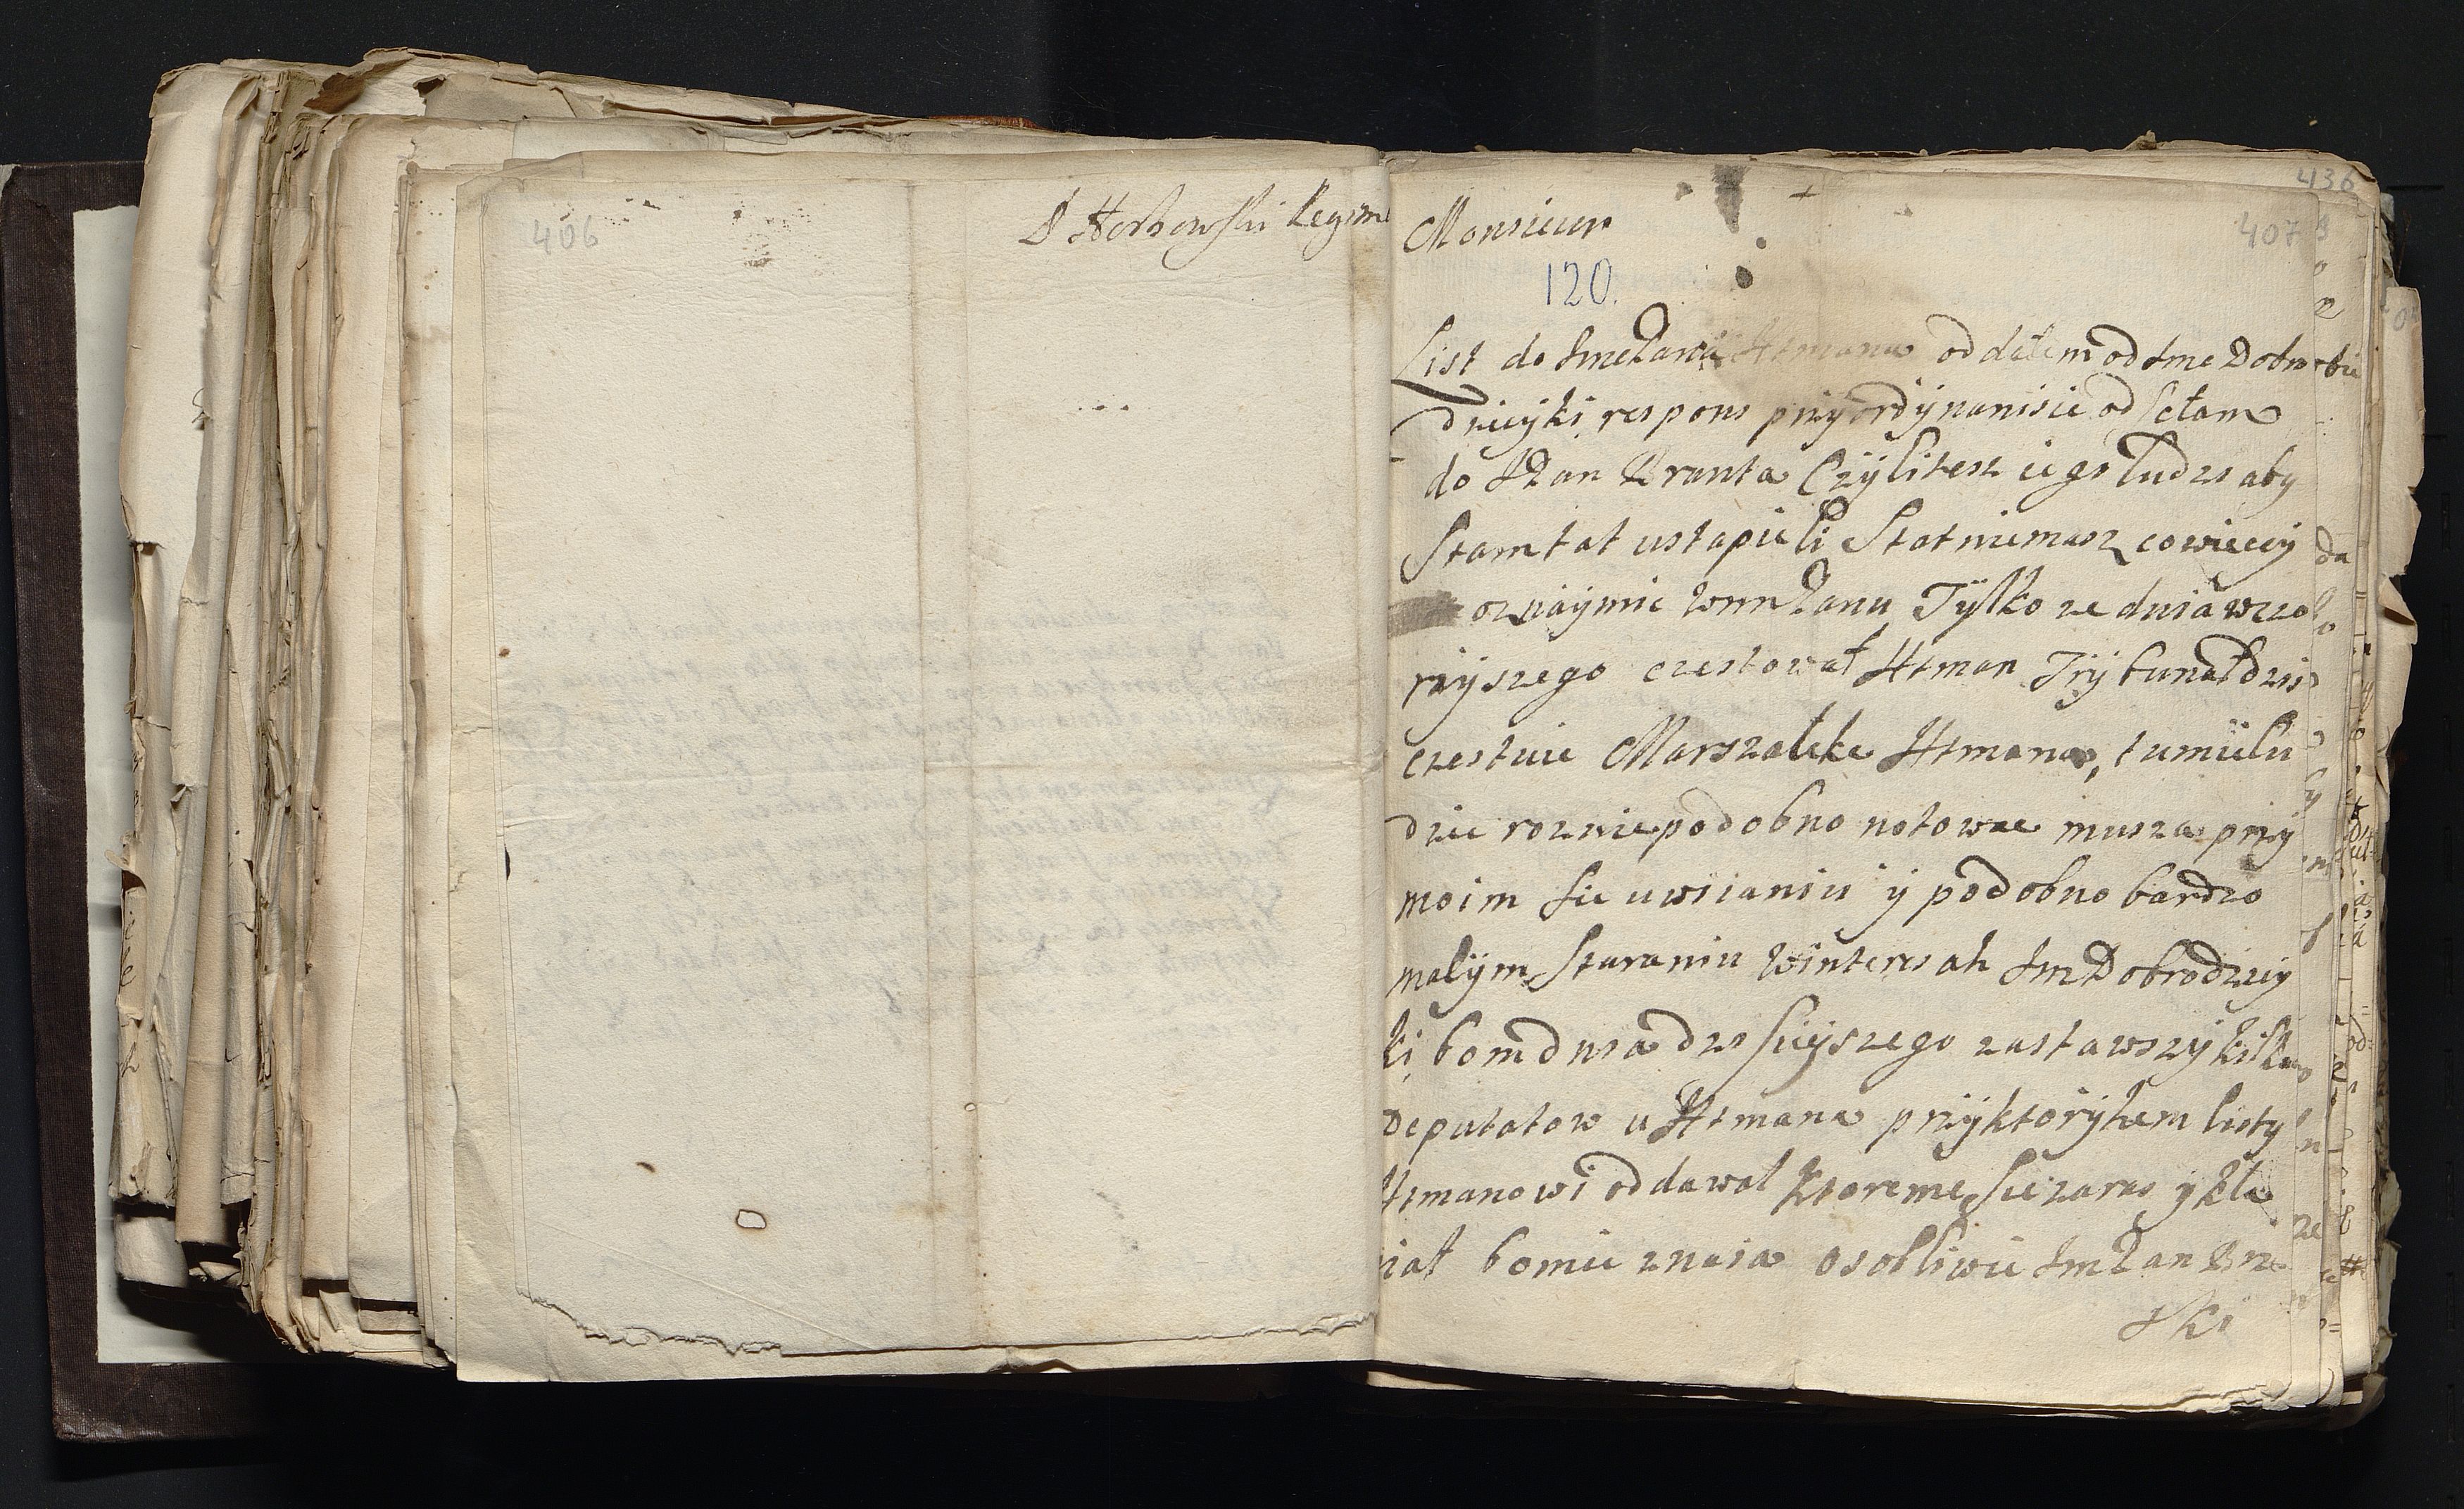 406
Monsieur
407
436
120.
List do Jme Pana Htmana oddałem od Jme Dobro
dzieyki respons przyordynunisie odsełam
do JPan Branta Czyli tesz iego ludzi aby
Stamtat ustapieli Stat niemasz co wiecy
oznaymic wmPanu Tylko ze dnia wczo
rayszego czestował Htman Trybunał dzis
czestuie Marszałeke Htmana, tu mi ilu
dzie roznie podobno notowac musza przy
moim sie uwiianiu y podobno bardzo
małym Staraniu w interesah Jm Dobrodziey
ki bom dnia dzisieyszego zastawszy kilku
Deputatow u Htmana przy ktoryhem listy
Htmanowi oddawał ktore me sie zaras y kła
niał bo mie znaia osobliwie JmPan Brze
ski